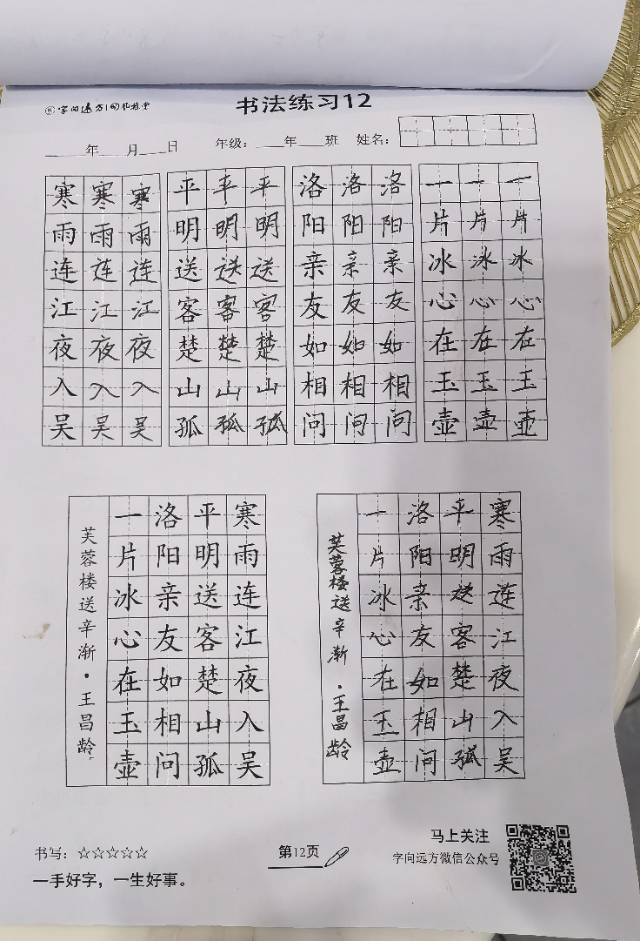 字向远方
书法练习12
年 月 日 年级： 年 班 姓名：
寒 寒 寒 平 平 平 洛 洛 洛 一 一 一
雨 雨 雨 明 明 明 阳 阳 阳 片 片 片
连 连 连 送 送 送 亲 亲 亲 冰 冰 冰
江 江 江 客 客 客 友 友 友 心 心 心
夜 夜 夜 楚 楚 楚 如 如 如 在 在 在
入 入 入 山 山 山 相 相 相 玉 玉 玉
吴 吴 吴 孤 孤 孤 问 问 问 壶 壶 壶
寒雨连江夜入吴
平明送客楚山孤
洛阳亲友如相问
一片冰心在玉壶
芙蓉楼送辛渐·王昌龄
寒雨连江夜入吴
平明送客楚山孤
洛阳亲友如相问
一片冰心在玉壶
芙蓉楼送辛渐·王昌龄
书写：☆☆☆☆☆
一手好字，一生好事。
第12页
马上关注
字向远方微信公众号